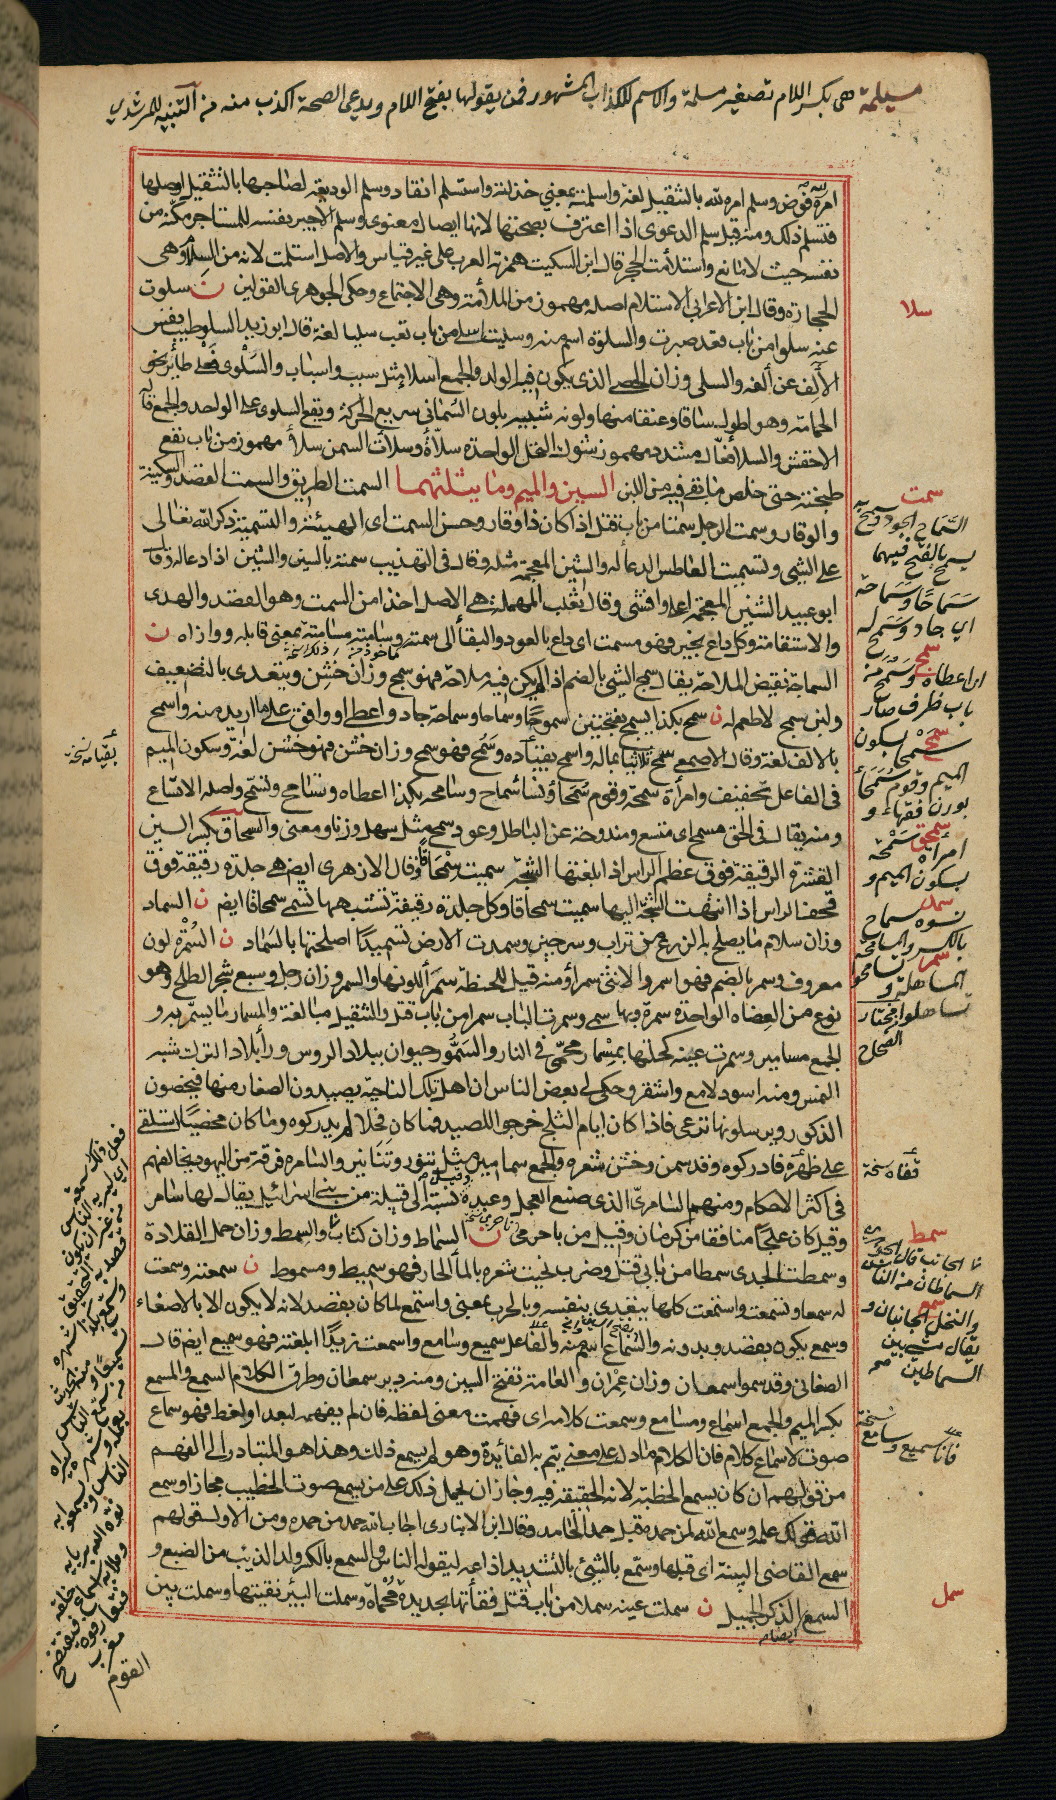 مسيلمة هى بكسر اللام تصغير مسلمة والاسم للكذاب المشهور فمن يقولها بفتح اللام ويدعى الصحة اكذب منه من التنبيه للمرشدي
امره لله فوض وسلم امره لله بالتثقيل لغة واسلمته بمعنى خذلته واستسلم انقاد وسلم الوديعة لصاحبها بالتثقيل اوصلها
فتسلم ذلك ومنه قيل سلم الدعوى اذا اعترف بصحتها لانها ايصال معنوى وسلم الاجير نفسه للمستاجر مكنه من
نفسه حيث لا مانع واستلأمت الحجر قال ابن السكيت همزته العرب على غير قياس والاصل استلمت لانه من السلام وهى
الحجارة وقال ابن الاعرابى الاستلام اصله مهموز من الملائمة وهى الاجتماع وحكى الجوهرى القولين ن سلوت
عنه سلوا من باب قعد صبرت والسلوة اسم منه وسليت اسلى من باب تعب سليا لغة قال ابو زيد السلو طيب نفس
الألف عن الفه والسلى وزان الحصى الذى يكون فيه الولد والجمع اسلاء مثل سبب واسباب والسلوى فعلى طائر نحو
الحمامة وهو اطول ساقا وعنقا منها ولونه شبيه بلون السمانى سريع الحركة ويقع السلوى على الواحد والجمع قاله
الاخفش والسلاء فعّال مشدد مهموز شوك النخل الواحدة سلاءة وسلأت السمن سلأ مهموز من باب نفع
طبخته حتى خلص ما بقى فيه من اللبن السين والميم وما يثلثهما السمت الطريق والسمت القصد والسكينة
والوقار وسمت الرجل سمتا من باب قتل اذا كان ذا وقار وحسن السمت اى الهيئة والتسمية ذكر الله تعالى
على الشيئ وتسميت العاطس الدعا له والشين المعجمة مثله وقال فى التهذيب سمته بالسين والشين اذا دعا له وقال
ابو عبيد الشين المعجمة اعلى وافشى وقال ثعلب المهملة هى الاصل اخذا من السمت وهو القصد والهدى
والاستقامة وكل داع بخير فهو مسمت اى داع بالعود والبقا الى سمته وسامته مسامتة بمعنى قابله ووازاه ن
السماجة نقيض الملاحة يقال سمج الشيئ بالضم اذا لم يكن فيه ملاحة فهو سمج وزان خشن ويتعدى بالتضعيف
ولبن سمج لا طعم له ن سمح بكذا يسمح بفتحتين سموحا وسماحا وسماحة جاد واعطى او وافق على ما اريد منه واسمح
بالالف لغة وقال الاصمعى سمح ثلاثيا بماله واسمح بقياده وسمح فهو سمح وزان خشن فهو خشن لغة وسكون الميم
فى الفاعل تخفيف وامرأة سمحة وقوم سمحاء ونساء سماح وسامحه بكذا اعطاه وتسامح وتسمح واصله الاتساع
ومنه يقال فى الحق مسمح اى متسع ومندوحة عن الباطل وعود سمح مثل سهل وزنا ومعنى والسمحاق بكسر السين
القشرة الرقيقة فوق عظم الراس اذا بلغتها الشجة سميت سمحاقا وقال الازهرى ايضا هى جلدة رقيقة فوق
قحف الراس اذا انتهت الشجة اليها سميت سمحاقا وكل جلدة رقيقة تشبهها تسمى سمحاقا ايضا ن السماد
وزان سلام ما يصلح به الزرع من تراب وسرجين وسمدت الارض تسميدا اصلحتها بالسماد ن السمرة لون
معروف وسمر بالضم فهو اسمر والانثى سمراء ومنه قيل للحنطة سمراء للونها والسمر وزان رجل وسبع شجر الطلح وهو
نوع من العضاه الواحدة سمرة وبها سمى وسمرت الباب سمرا من باب قتل والتثقيل مبالغة والمسمار ما يسمر به و
الجمع مسامير وسمرت عينه كحلتها بمسمار محمى فى النار والسمور حيوان ببلاد الروس وراء بلاد الترك يشبه
النمس ومنه اسود لامع واشقر وحكى لى بعض الناس ان اهل تلك الناحية يصيدون الصغار منها فيخصون
الذكور ويرسلونها ترعى فاذا كان ايام الثلج خرجوا للصيد فما كان فحلا لم يدركوه وما كان مخصيا استلقى
على ظهره فادركوه وقد سمن وخشن شعره والجمع سمامير مثل تنور وتنانير والسامرة فرقة من اليهود يخالفهم
فى اكثر الاحكام ومنهم السامرى الذى صنع العجل وعبده نسبة الى قبيلة من بنى اسرائيل يقال لها سامر
وقيل كان علجا منافقا من كرمان وقيل من باجرمى ن السماط وزان كتاب والسمط وزان حمل القلادة
وسمطت الجدى سمطا من بابى قتل وضرب نحيت شعره بالماء الحار فهو سميط ومسموط ن سمعته وسمعت
له سمعا وتسمعت واستمعت كلها يتعدى بنفسه وبالحرف بمعنى واستمع لما كان بقصد لانه لا يكون الا بالاصغاء
وسمع يكون بقصد وبدونه والسماع اسم منه والفاعل سميع وسامع واسمعت زيدا ابلغته فهو سميع ايضا قال
الصغانى وقد سموا سمعان وزان عمران والعامة تفتح السين ومنه دير سمعان وطرق الكلام السمع والمسمع
بكسر الميم والجمع اسماع ومسامع وسمعت كلامه اى فهمت معنى لفظه فان لم يفهمه لبعد او لغط فهو سماع
صوت لا سماع كلام فان الكلام ما دل على معنى يتم به الفائدة وهو لم يسمع ذلك وهذا هو المتبادر الى الفهم
من قولهم ان كان يسمع الخطبة لانه الحقيقة فيه وجاز ان يحمل ذلك على من يسمع صوت الخطيب مجازا وسمع
الله قولك علمه وسمع الله لمن حمده قبل حمد الحامد وقال ابن الانبارى اجاب الله حمد من حمده ومن الاول قولهم
سمع القاضى البينة اى قبلها وسمّع بالشيئ بالتشديد اذاعه ليقوله الناس والسمع بالكسر ولد الذئب من الضبع و
السمع الذكر الجميل ن سملت عينه سملا من باب قتل فقأتها بحديدة محماة وسملت البئر نقيتها وسملت بين
ايضا
سلا
سمت
السماح الجود سمح به
يسمح بالفتح فيهما
سماحا وسماحة
اى جاد وسمح له
سمج
اى اعطاه وسمح من
باب ظرف صار
سمح
سمحا بسكون
الميم وقوم سمحاء
بوزن فقهاء و
سمحق
امرأة سمحة
بسكون الميم و
سمد
نسوة سماح
بالكسر والمسامحة
سمر
المساهلة وتسامحوا
تساهلوا مختار
الصحاح
بقيامه نسخة
قفاه نسخة
سمط
السماطان من الناس
سمع
والنخل الجانبان و
يقال مشى بين
السماطين صح
نسخة
فانا سميع وسامع
سمل
القوم